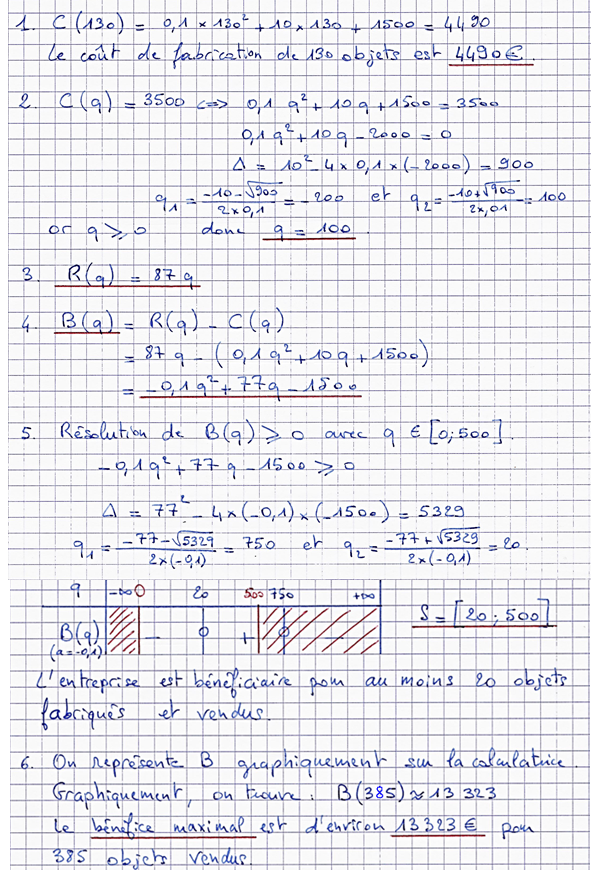 1. C(130) = 0,1 × 130² + 10 × 130 + 1500 = 4490
Le coût de fabrication de 130 objets est 4490€.
2. C(q) = 3500 ⟺ 0,1 q² + 10q + 1500 = 3500
0,1 q² + 10q - 2000 = 0
Δ = 10² - 4 × 0,1 × (-2000) = 900
q₁ = (-10 - √900)/(2×0,1) = -200 et q₂ = (-10 + √900)/(2×,01) = 100
or q ⩾ 0 donc q = 100.
3. R(q) = 87q
4. B(q) = R(q) - C(q)
= 87q - (0,1 q² + 10q + 1500)
= -0,1 q² + 77q - 1500
5. Résolution de B(q) ⩾ 0 avec q ∈ [0;500].
-0,1 q² + 77q - 1500 ⩾ 0
Δ = 77² - 4×(-0,1)×(-1500) = 5329
q₁ = (-77 - √5329)/(2×(-0,1)) = 750 et q₂ = (-77 + √5329)/(2×(-0,1)) = 20.
q -∞ 0 20 500 750 +∞
B(q) - 0 + 0 S = [20;500]
(a=-0,1)
L'entreprise est bénéficiaire pour au moins 20 objets
fabriqués et vendus.
6. On représente B graphiquement sur la calculatrice.
Graphiquement, on trouve : B(385) ≈ 13 323
Le bénéfice maximal est d'environ 13323 € pour
385 objets vendus.